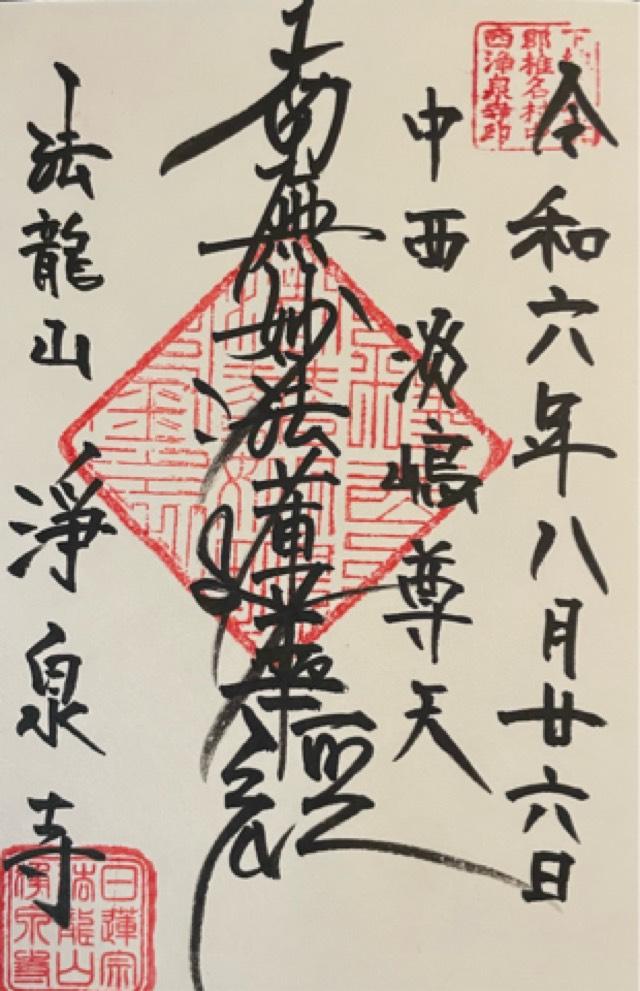 令和六年八月廿六日
中西淡嶋尊天
南無妙法蓮華経
法龍山 淨泉寺
郡椎名村中
西淨泉寺印
日蓮宗
法龍山
淨泉寺